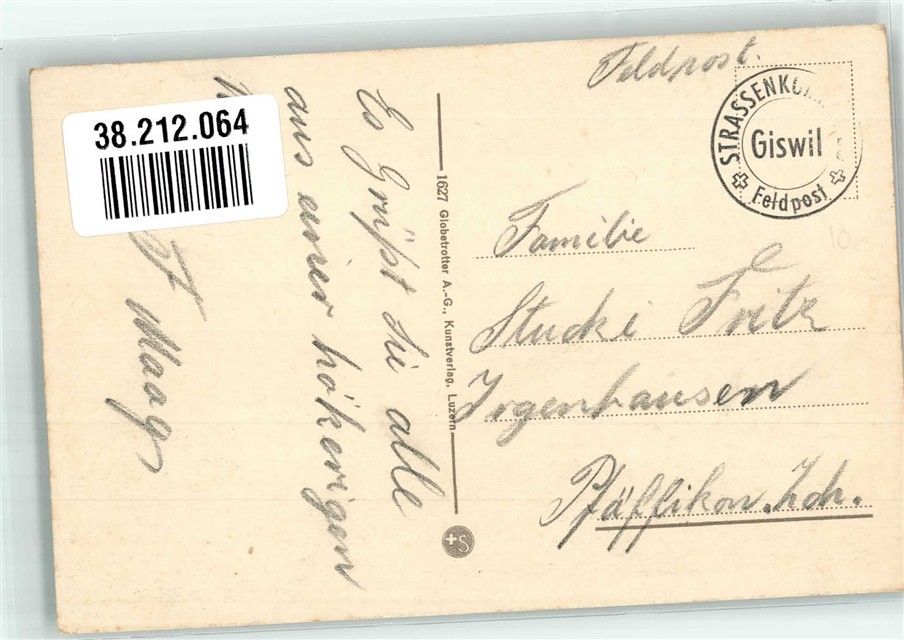 Feldpost.
STRASSENKO
Giswil
Feldpost
38.212.064
Es Grüsst Sie alle
aus einer hökerigen
F Maag
1627 Globetrotter A.-G., Kunstverlag, Luzern
Familie
Stucki Fritz
Irgenhausen
Pfäffikon. Zch.
S
10